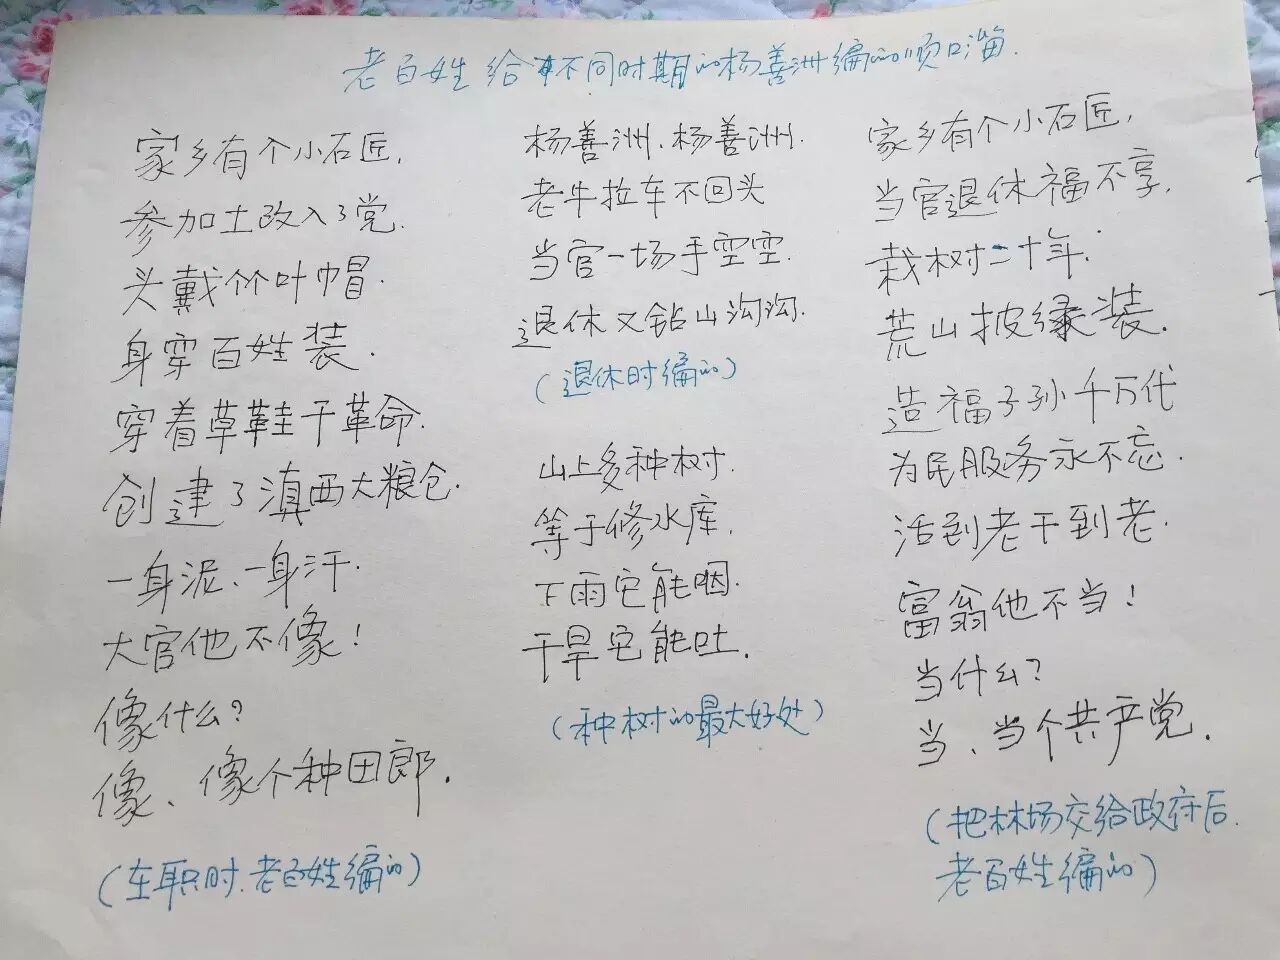 老百姓给不同时期的杨善洲编的顺口溜.
家乡有个小石匠.
参加土改入了党.
头戴竹叶帽.
身穿百姓装.
穿着草鞋干革命.
创建了滇西大粮仓.
一身泥、一身汗.
大官他不像!
像什么?
像、像个种田郎.
(在职时.老百姓编的)
杨善洲.杨善洲.
老牛拉车不回头
当官一场手空空.
退休又钻山沟沟.
(退休时编的)
山上多种树.
等于修水库.
下雨它能咽.
干旱它能吐.
(种树的最大好处)
家乡有个小石匠,
当官退休福不享,
栽树二十年.
荒山披绿装.
造福子孙千万代
为民服务永不忘.
活到老干到老.
富翁他不当!
当什么?
当、当个共产党.
(把林场交给政府后.
老百姓编的)